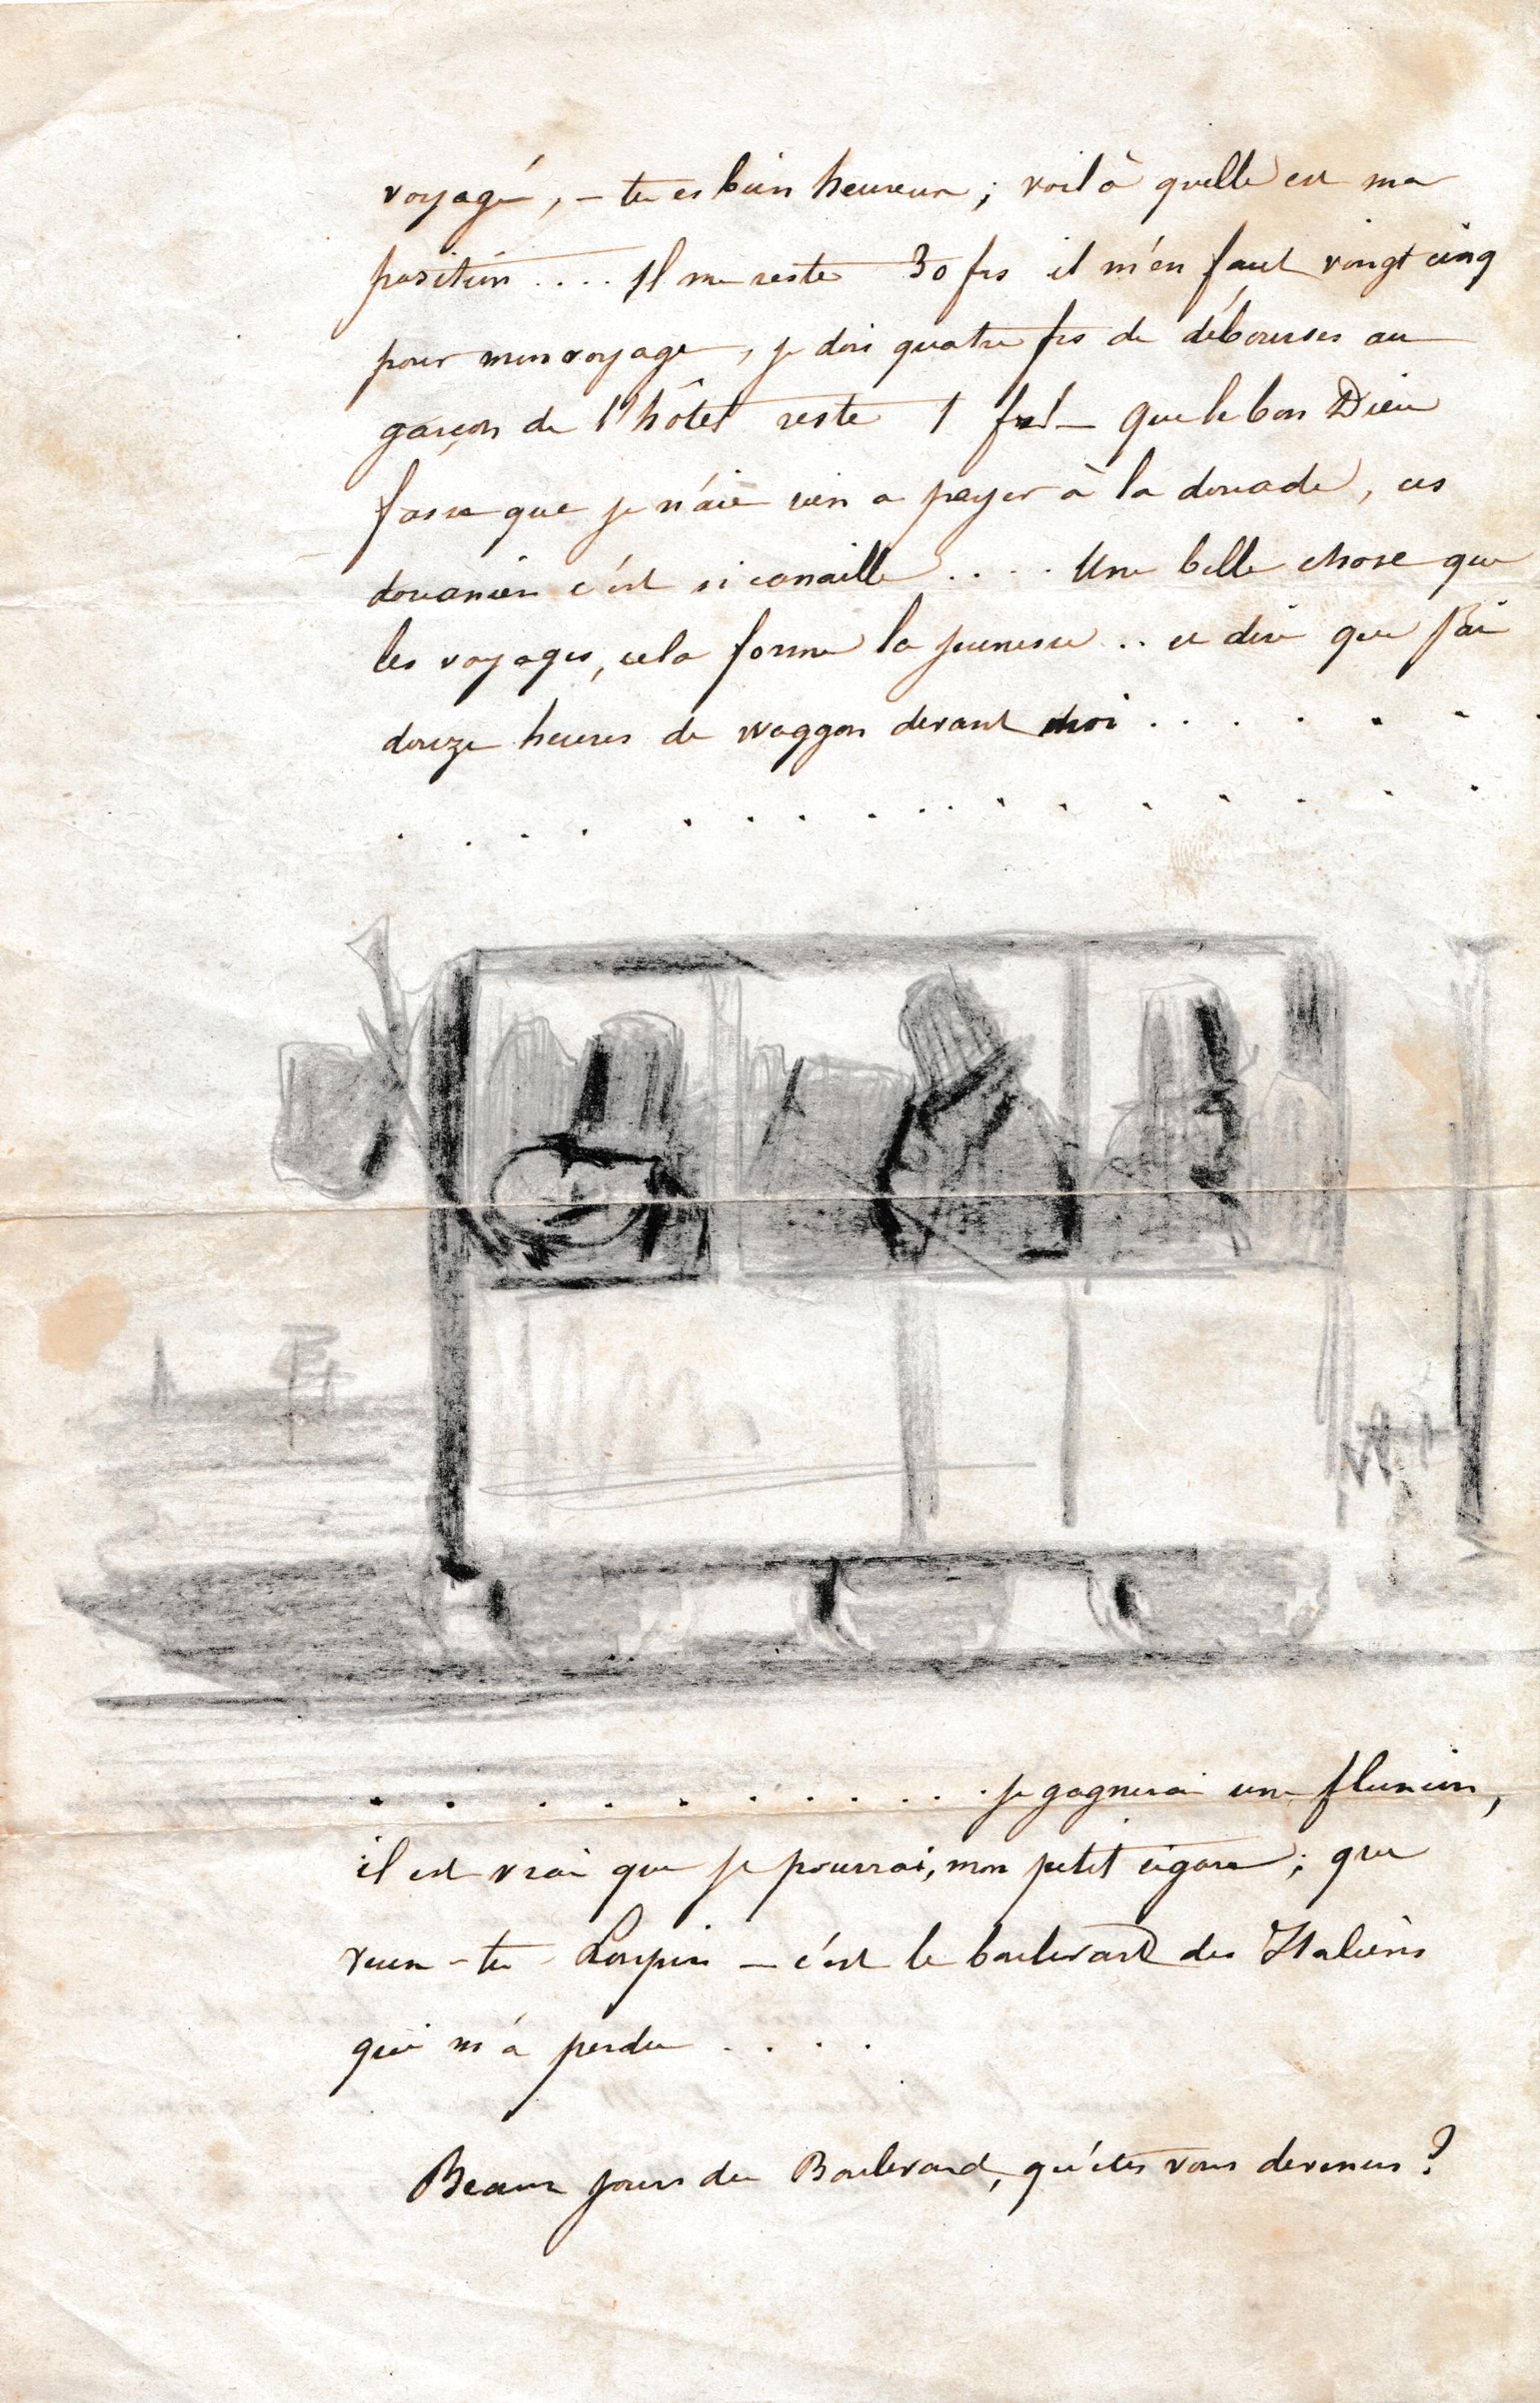 voyagé, – tu es bien heureux ; voilà quelle est ma
position .... Il me reste 30 frs il m'en faut vingt cinq
pour mon voyage, je dois quatre frs de débourses au
garçon de l'hôtel reste 1 fr! – Que le bon Dieu
fasse que je n'aie rien a payer à la douade, ces
douanier c'est si canaille .... Une belle chose que
les voyages, cela forme la jeunesse .. et dire que j'ai
douze heures de waggon devant moi . . . . . .
. . . . . . . . . . . . . . . . .
. . . . . . . . . . . je gagnerai une fluxion,
il est vrai que je pourrai, mon petit cigare ; que
veux-tu Loupin – c'est le boulevard des Italiens
qui m'a perdu ....
Beaux jours du Boulevard, qu'êtes vous devenus ?